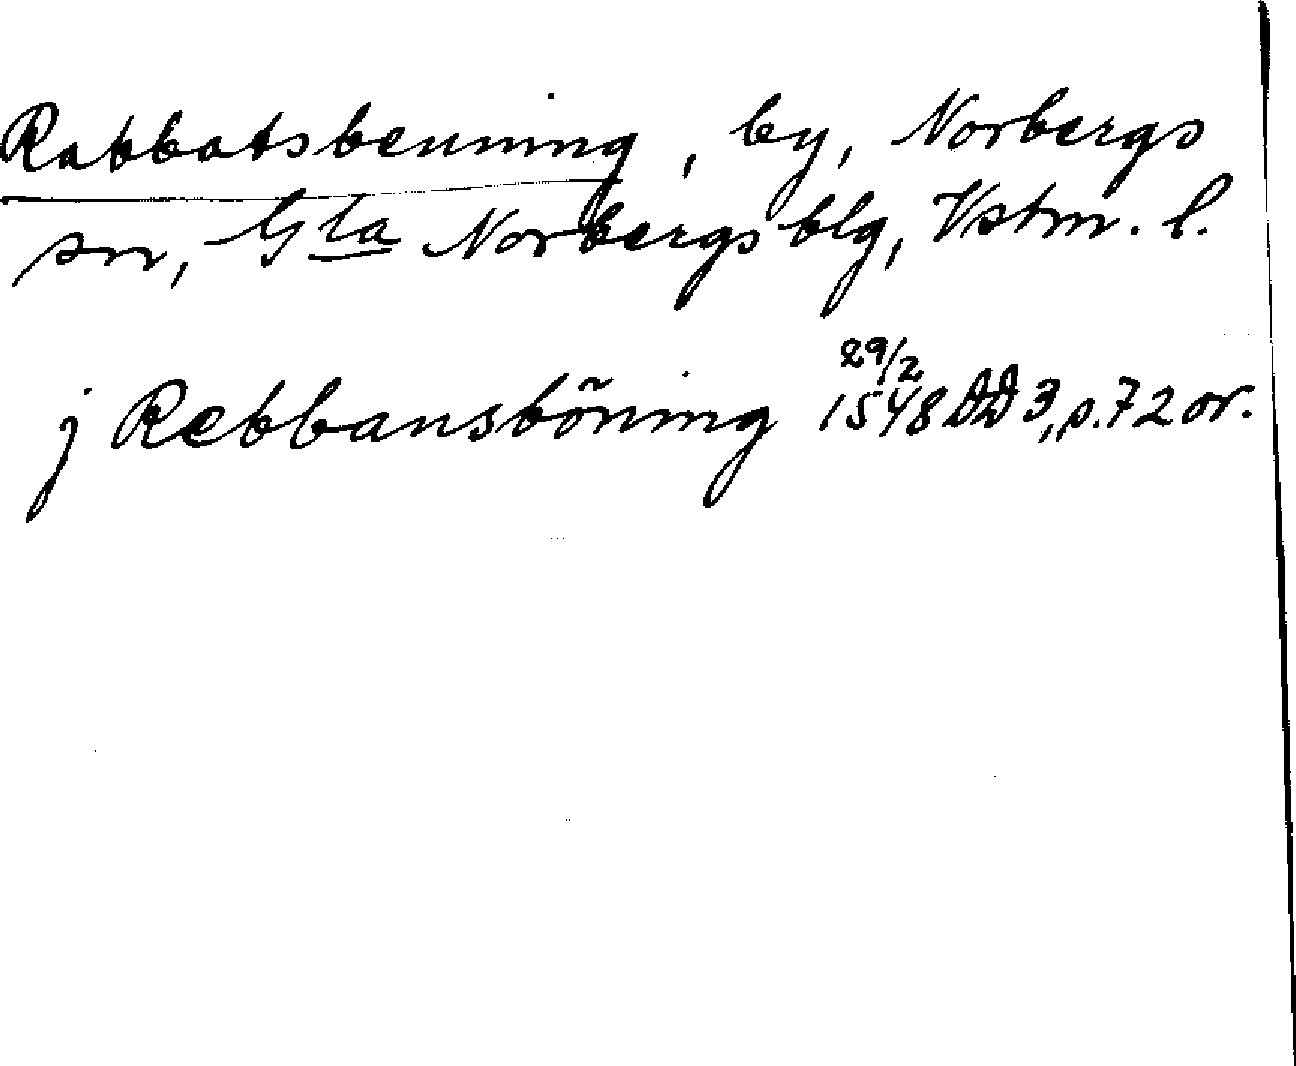 Rabbatsbenning, by, Norbergs
sn, Gla Norbergs blg, Vstm. l.
j Rebbansböning 29/2 1548 DD 3, p. 72 or.